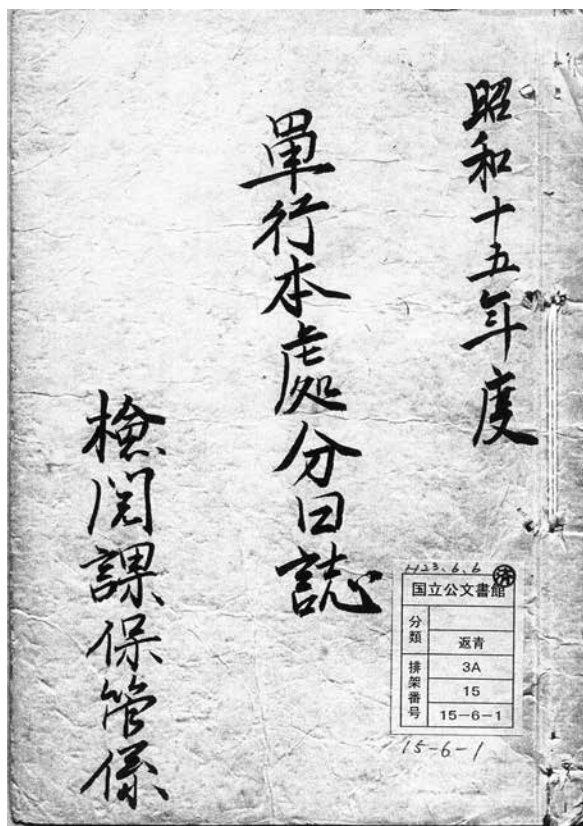 昭和十五年度
單行本處分日誌
檢閲課保管係
H23.6.6
済
国立公文書館
分類
返青
排架番号
3A
15
15-6-1
15-6-1